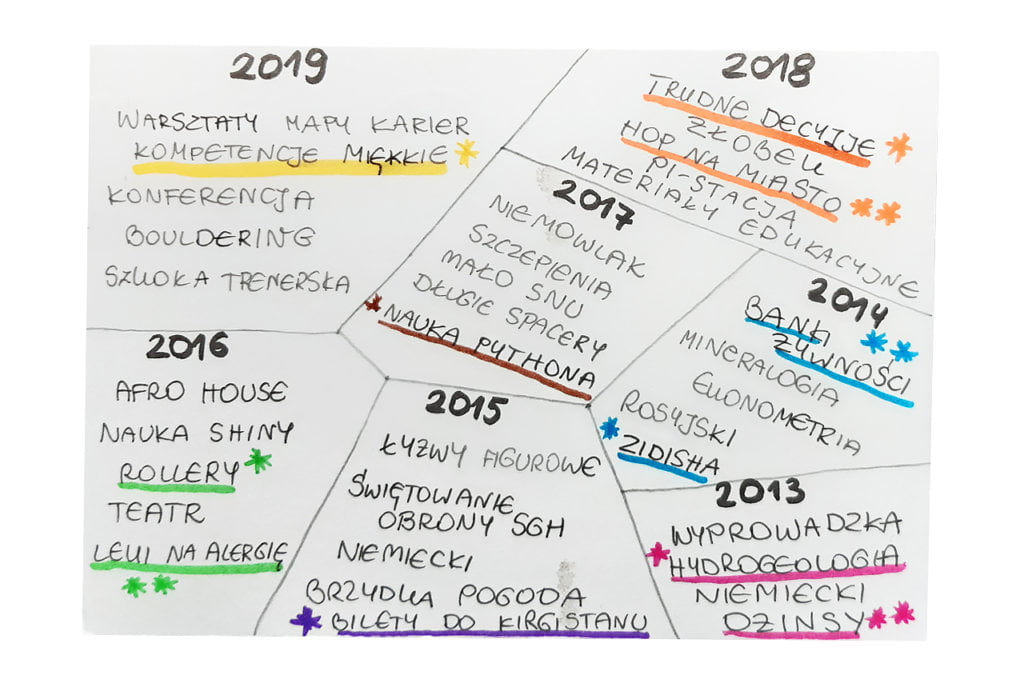 2019
WARSZTATY MAPY KARIER
KOMPETENCJE MIĘKKIE
KONFERENCJA
BOULDERING
SZKOŁA TRENERSKA
2018
TRUDNE DECYZJE
ŻŁOBEK
HOP NA MIASTO
PI-STACJA
MATERIAŁY EDUKACYJNE
2017
NIEMOWLAK
SZCZEPIENIA
MAŁO SNU
DŁUGIE SPACERY
NAUKA PYTHONA
2014
BANK
ŻYWNOŚCI
MINERALOGIA
EKONOMETRIA
ROSYJSKI
ZIDISHA
2016
AFRO HOUSE
NAUKA SHINY
ROLLERY
TEATR
LEKI NA ALERGIĘ
2015
ŁYŻWY FIGUROWE
ŚWIĘTOWANIE
OBRONY SGH
NIEMIECKI
BRZYDKA POGODA
BILETY DO KIRGISTANU
2013
WYPROWADZKA
HYDROGEOLOGIA
NIEMIECKI
DŻINSY